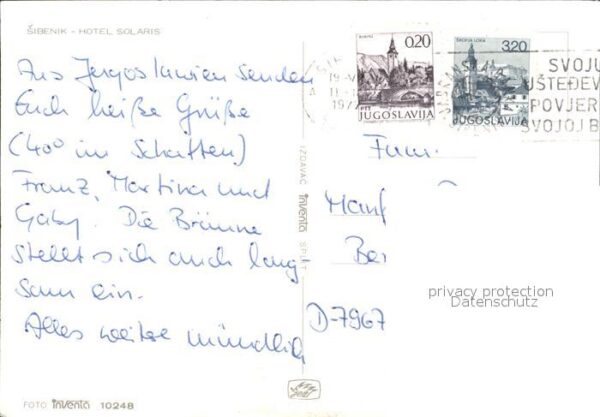 ŠIBENIK - HOTEL SOLARIS
Aus Jugoslawien senden
Euch heiße Grüße
(40° im Schatten)
Franz, Martina und
Gaby. Die Bräune
stellt sich auch lang-
sam ein.
Alles weitere mündlich
FOTO inventa 10248
IZDAVAČ inventa SPLIT
0,20
JUGOSLAVIJA
ŠKOFJA LOKA
3,20
JUGOSLAVIJA
19-V
197
SVOJU
UŠTEĐEV
POVJER
SVOJOJ B
Fam.
Manf
Ber
D-7967
privacy protection
Datenschutz